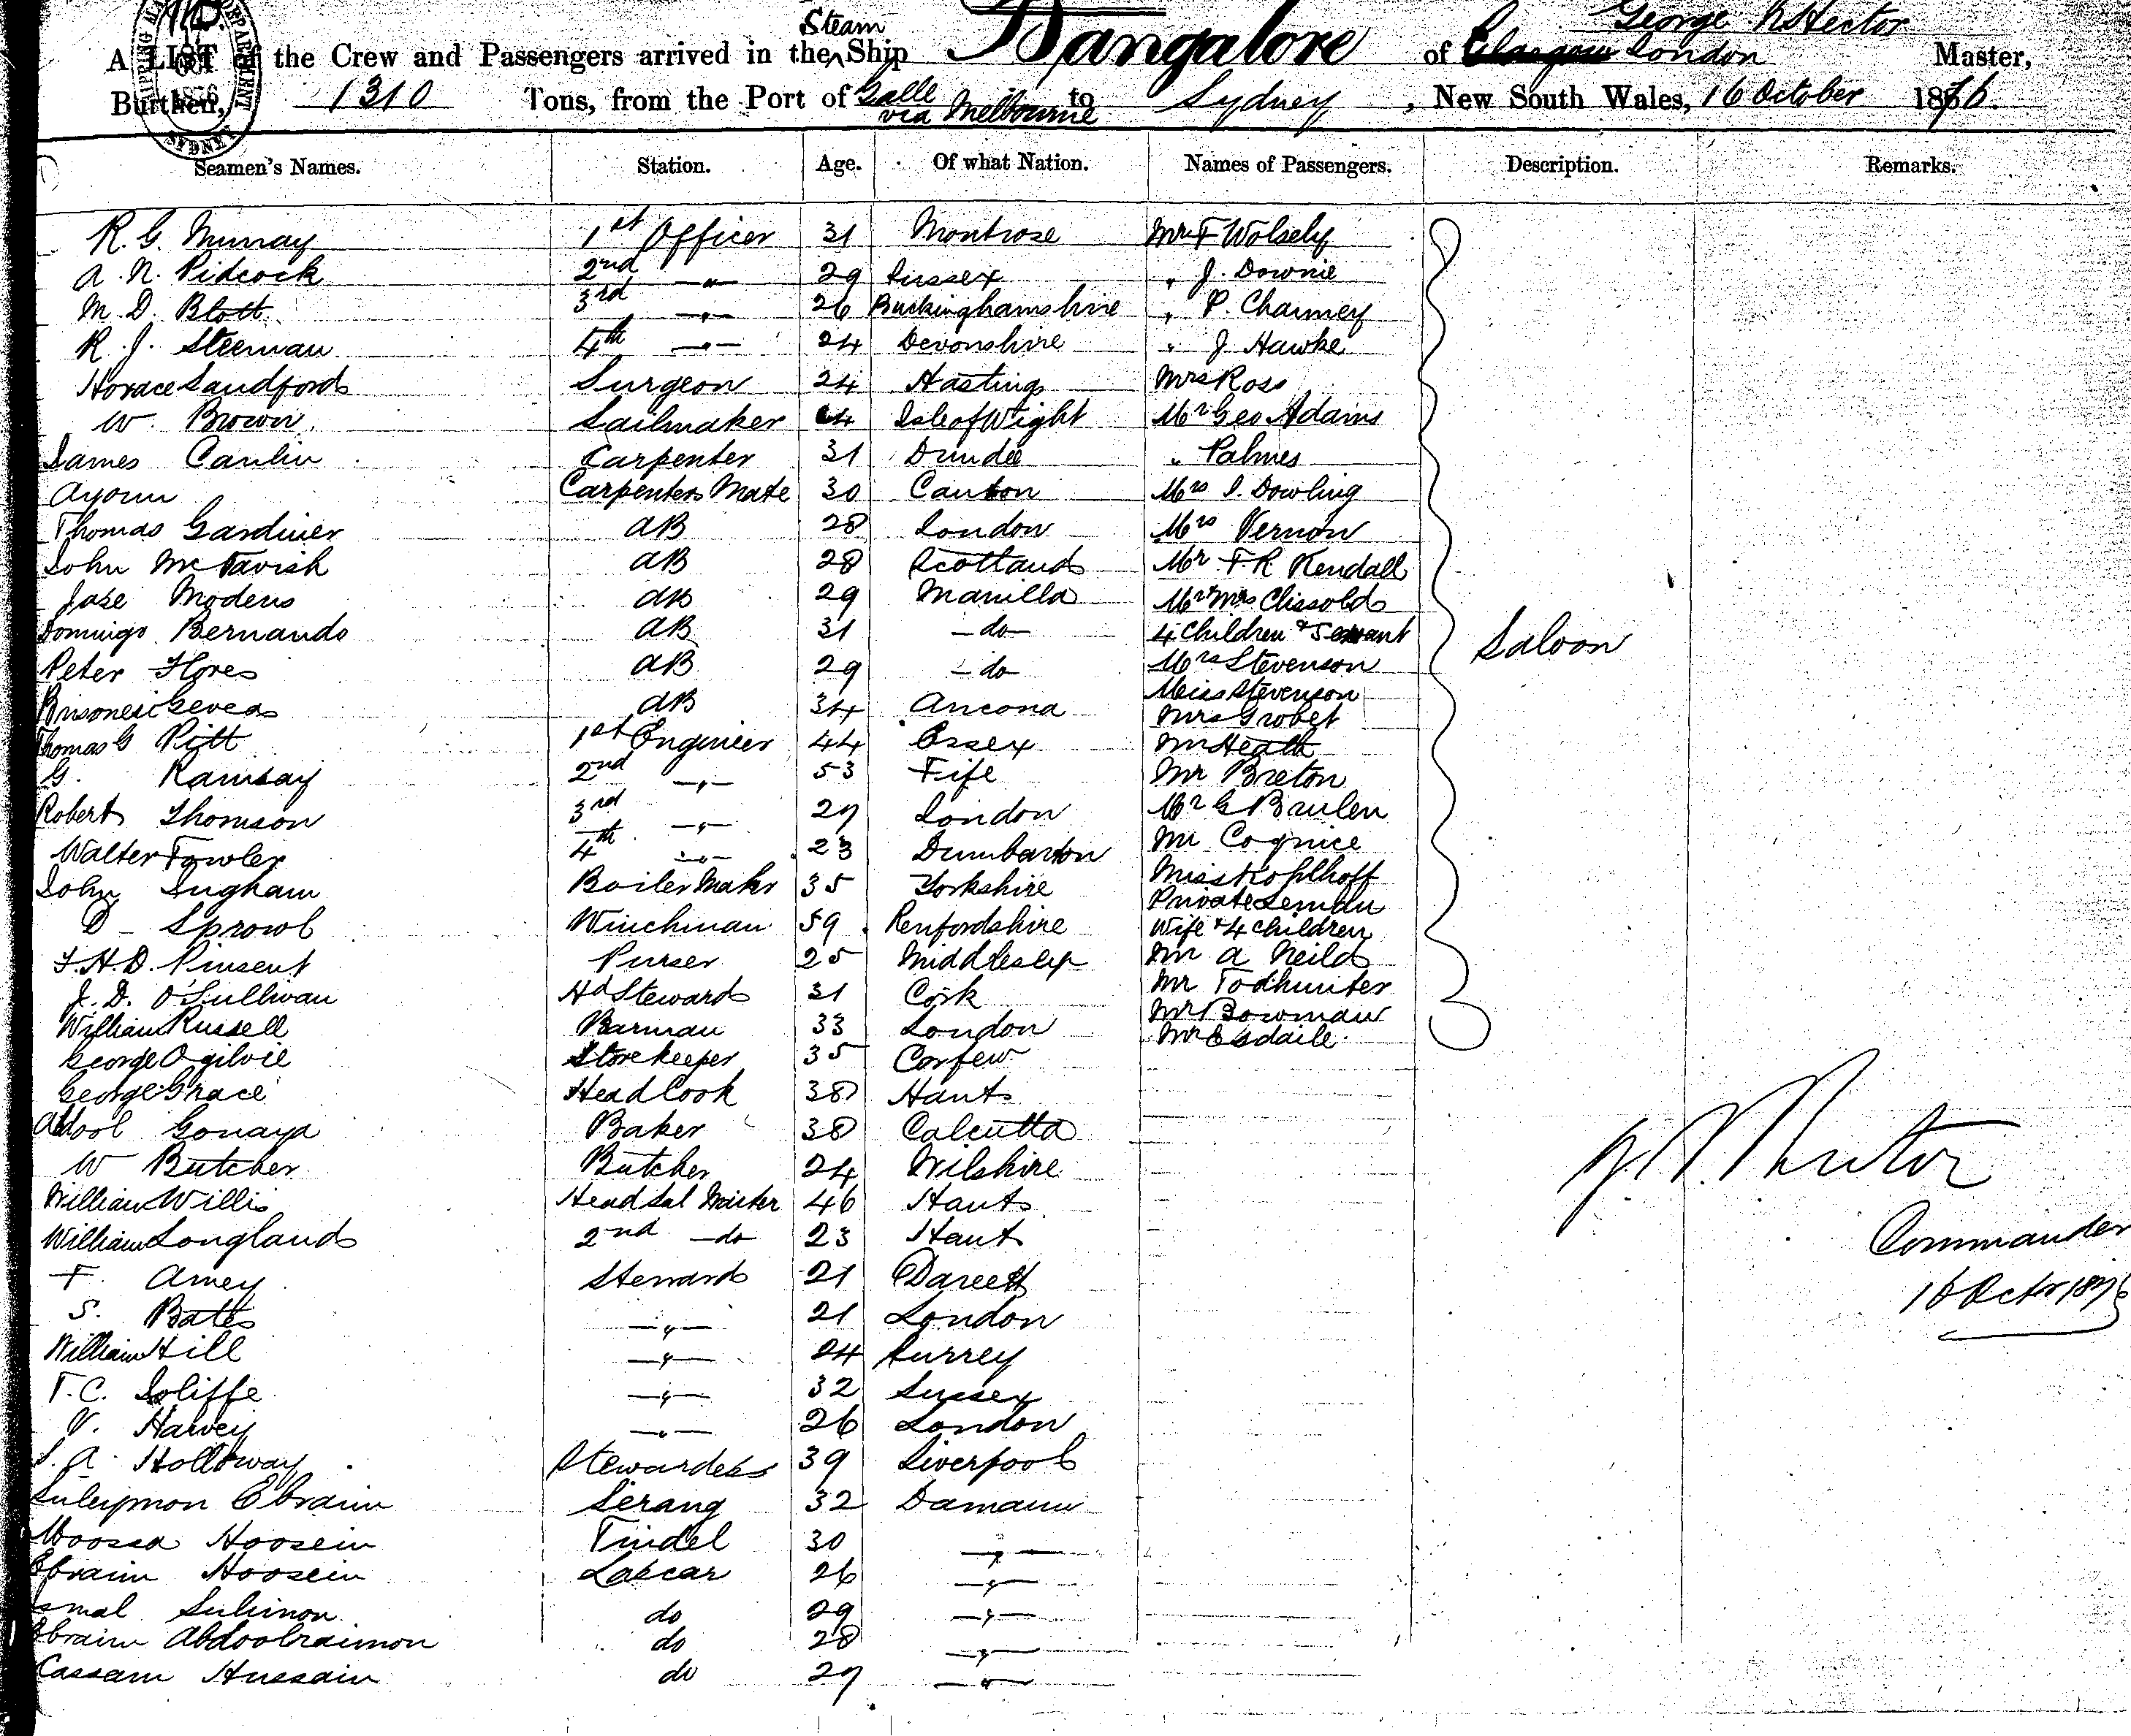 Steam
George N Hector
A LIST of the Crew and Passengers arrived in the Ship Bangalore of Glasgow London Master,
Burthen, 1310 Tons, from the Port of Galle via Melbourne to Sydney, New South Wales, 16 October 1876.
Seamen's Names. Station. Age. Of what Nation. Names of Passengers. Description. Remarks.
R. G. Murray 1st Officer 31 Montrose Mr F Wolsely
A. N. Pidcock 2nd " 29 Sussex " J. Downie
M. D. Blott 3rd " 26 Buckinghamshire " P. Charnley
R. J. Steeman 4th " 24 Devonshire " J. Hawke
Horace Sandford Surgeon 24 Hastings Mrs Ross
W. Brown Sailmaker 64 Isle of Wight Mr Geo Adams
James Caulin Carpenter 31 Dundee " Palmes
Ayoun Carpenters Mate 30 Canton Mrs I. Dowling
Thomas Gardiner AB 28 London Mrs Vernon
John McTavish AB 28 Scotland Mr F R Kendall
Jose Modens AB 29 Manilla Mr & Mrs Clissold
Domingo Bernando AB 31 - do - 4 Children & Servant Saloon
Peter Flores AB 29 - do Mrs Stevenson
Miss Stevenson
AB 34 Ancona Mrs Grobet
Thomas G Pitt 1st Engineer 44 Essex Mr Heath
G. Ramsay 2nd " 53 Fife Mr Breton
Robert Thomson 3rd " 27 London Mr G Braulen
Walter Fowler 4th " 23 Dumbarton Mr Cognice
John Ingham Boiler Maker 35 Yorkshire Miss Kohlhoff
Private Leman
D - Sprowl Winchman 59 Renfordshire Wife & 4 Children
F. H. D. Pinsent Purser 25 Middlesex Mr A Neild
J. D. O'Sullivan Hd Steward 31 Cork Mr Todhunter
William Russell Barman 33 London Mr Bowman
George Ogilvie Storekeeper 35 Corfew Mr Esdaile
George Grace Head Cook 38 Hants
Abdool Gonaya Baker 38 Calcutta
W Butcher Butcher 24 Wilshire
William Willis Head Sal Waiter 46 Hants
William Longland 2nd do 23 Hant
F. Amey Steward 21
S. Bates " 21 London
William Hill " 24 Surrey
T. C. Joliffe " 32 Sussex
V. Harvey " 26 London
S. A. Holloway Stewardess 39 Liverpool
Suleymon Ebraim Serang 32 Damaun
Moosa Hoosein Tindel 30 "
Ebraim Hoosein Lascar 26 "
Esmal Sulimon do 29 "
Ebraim Abdoolraimon do 28 "
Cassam Hussain do 27 "
G. N. Hector
Commander
16 Octr 1876